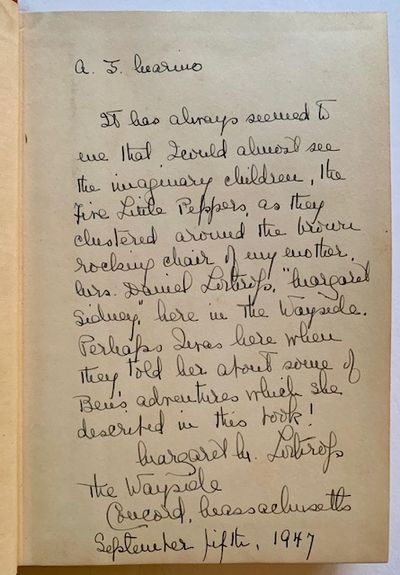 A. F. Marino
It has always seemed to
me that I could almost see
the imaginary children, the
Five Little Peppers, as they
clustered around the brown
rocking chair of my mother,
Mrs. Daniel Lothrop, "Margaret
Sidney", here in the Wayside.
Perhaps I was here when
they told her about some of
Ben's adventures which she
described in this book!
Margaret M. Lothrop
The Wayside
Concord, Massachusetts
September fifth, 1947